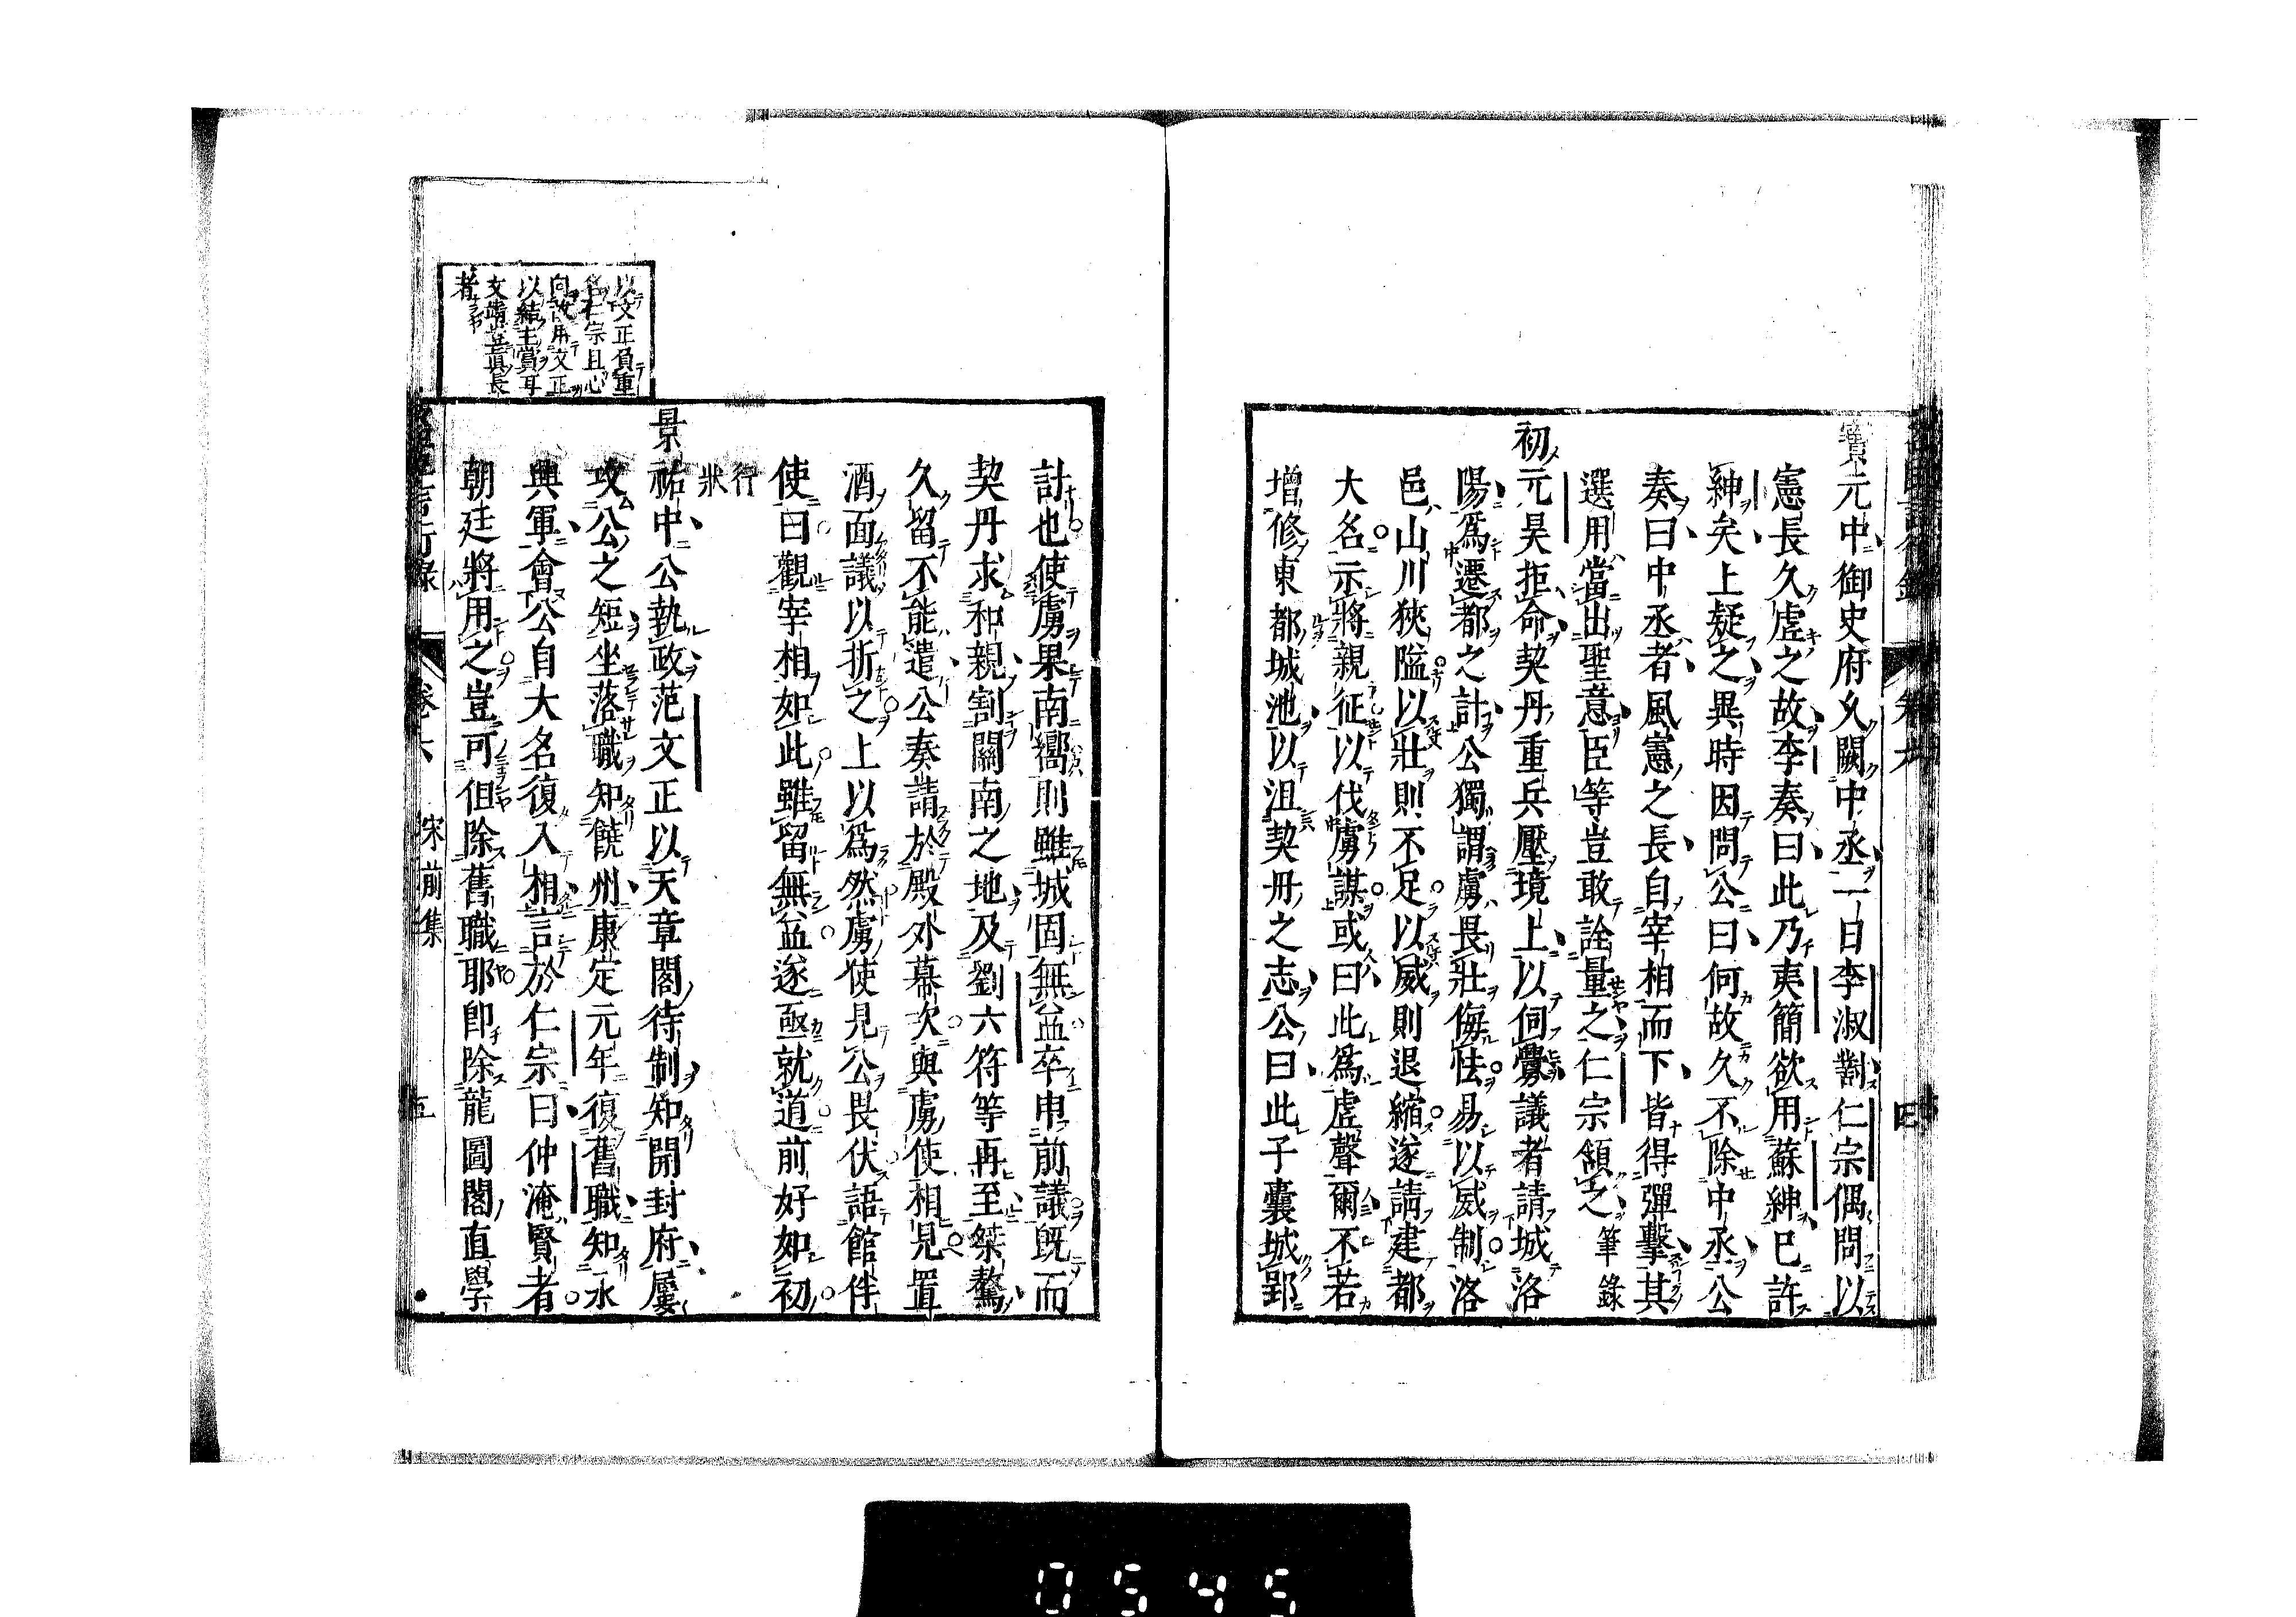 寶元中御史府久闕中丞一日李淑對仁宗偶問以
憲長久虛之故李奏曰此乃夷簡欲用蘇紳已許
紳矣上疑之異時因問公曰何故久不除中丞公
奏曰中丞者風憲之長自宰相而下皆得彈擊其
選用當出聖意臣等豈敢詮量之仁宗頷之筆錄
初元昊拒命契丹重兵壓境上以伺釁議者請城洛
陽爲遷都之計公獨謂虜畏壯侮怯易以威制洛
邑山川狹隘以壯則不足以威則退縮遂請建都
大名示將親征以伐虜謀或曰此爲虛聲爾不若
增修東都城池以沮契丹之志公曰此子囊城郢
計也使虜果南嚮則雖城固無益卒申前議既而
契丹求和親割關南之地及劉六符等再至桀驁
久留不能遣公奏請於殿外幕次與虜使相見置
酒面議以折之上以爲然虜使見公畏伏語館伴
使曰觀宰相如此雖留無益遂亟就道前好如初
行狀
景祐中公執政范文正以天章閣待制知開封府屢
攻公之短坐落職知饒州康定元年復舊職知永
興軍會公自大名復入相言於仁宗曰仲淹賢者
朝廷將用之豈可但除舊職耶卽除龍圖閣直學
以文正負重
名仁宗且心
向故用文正
以結主賞耳
文靖豈眞長
者
卷六
宋前集
五
四
0545